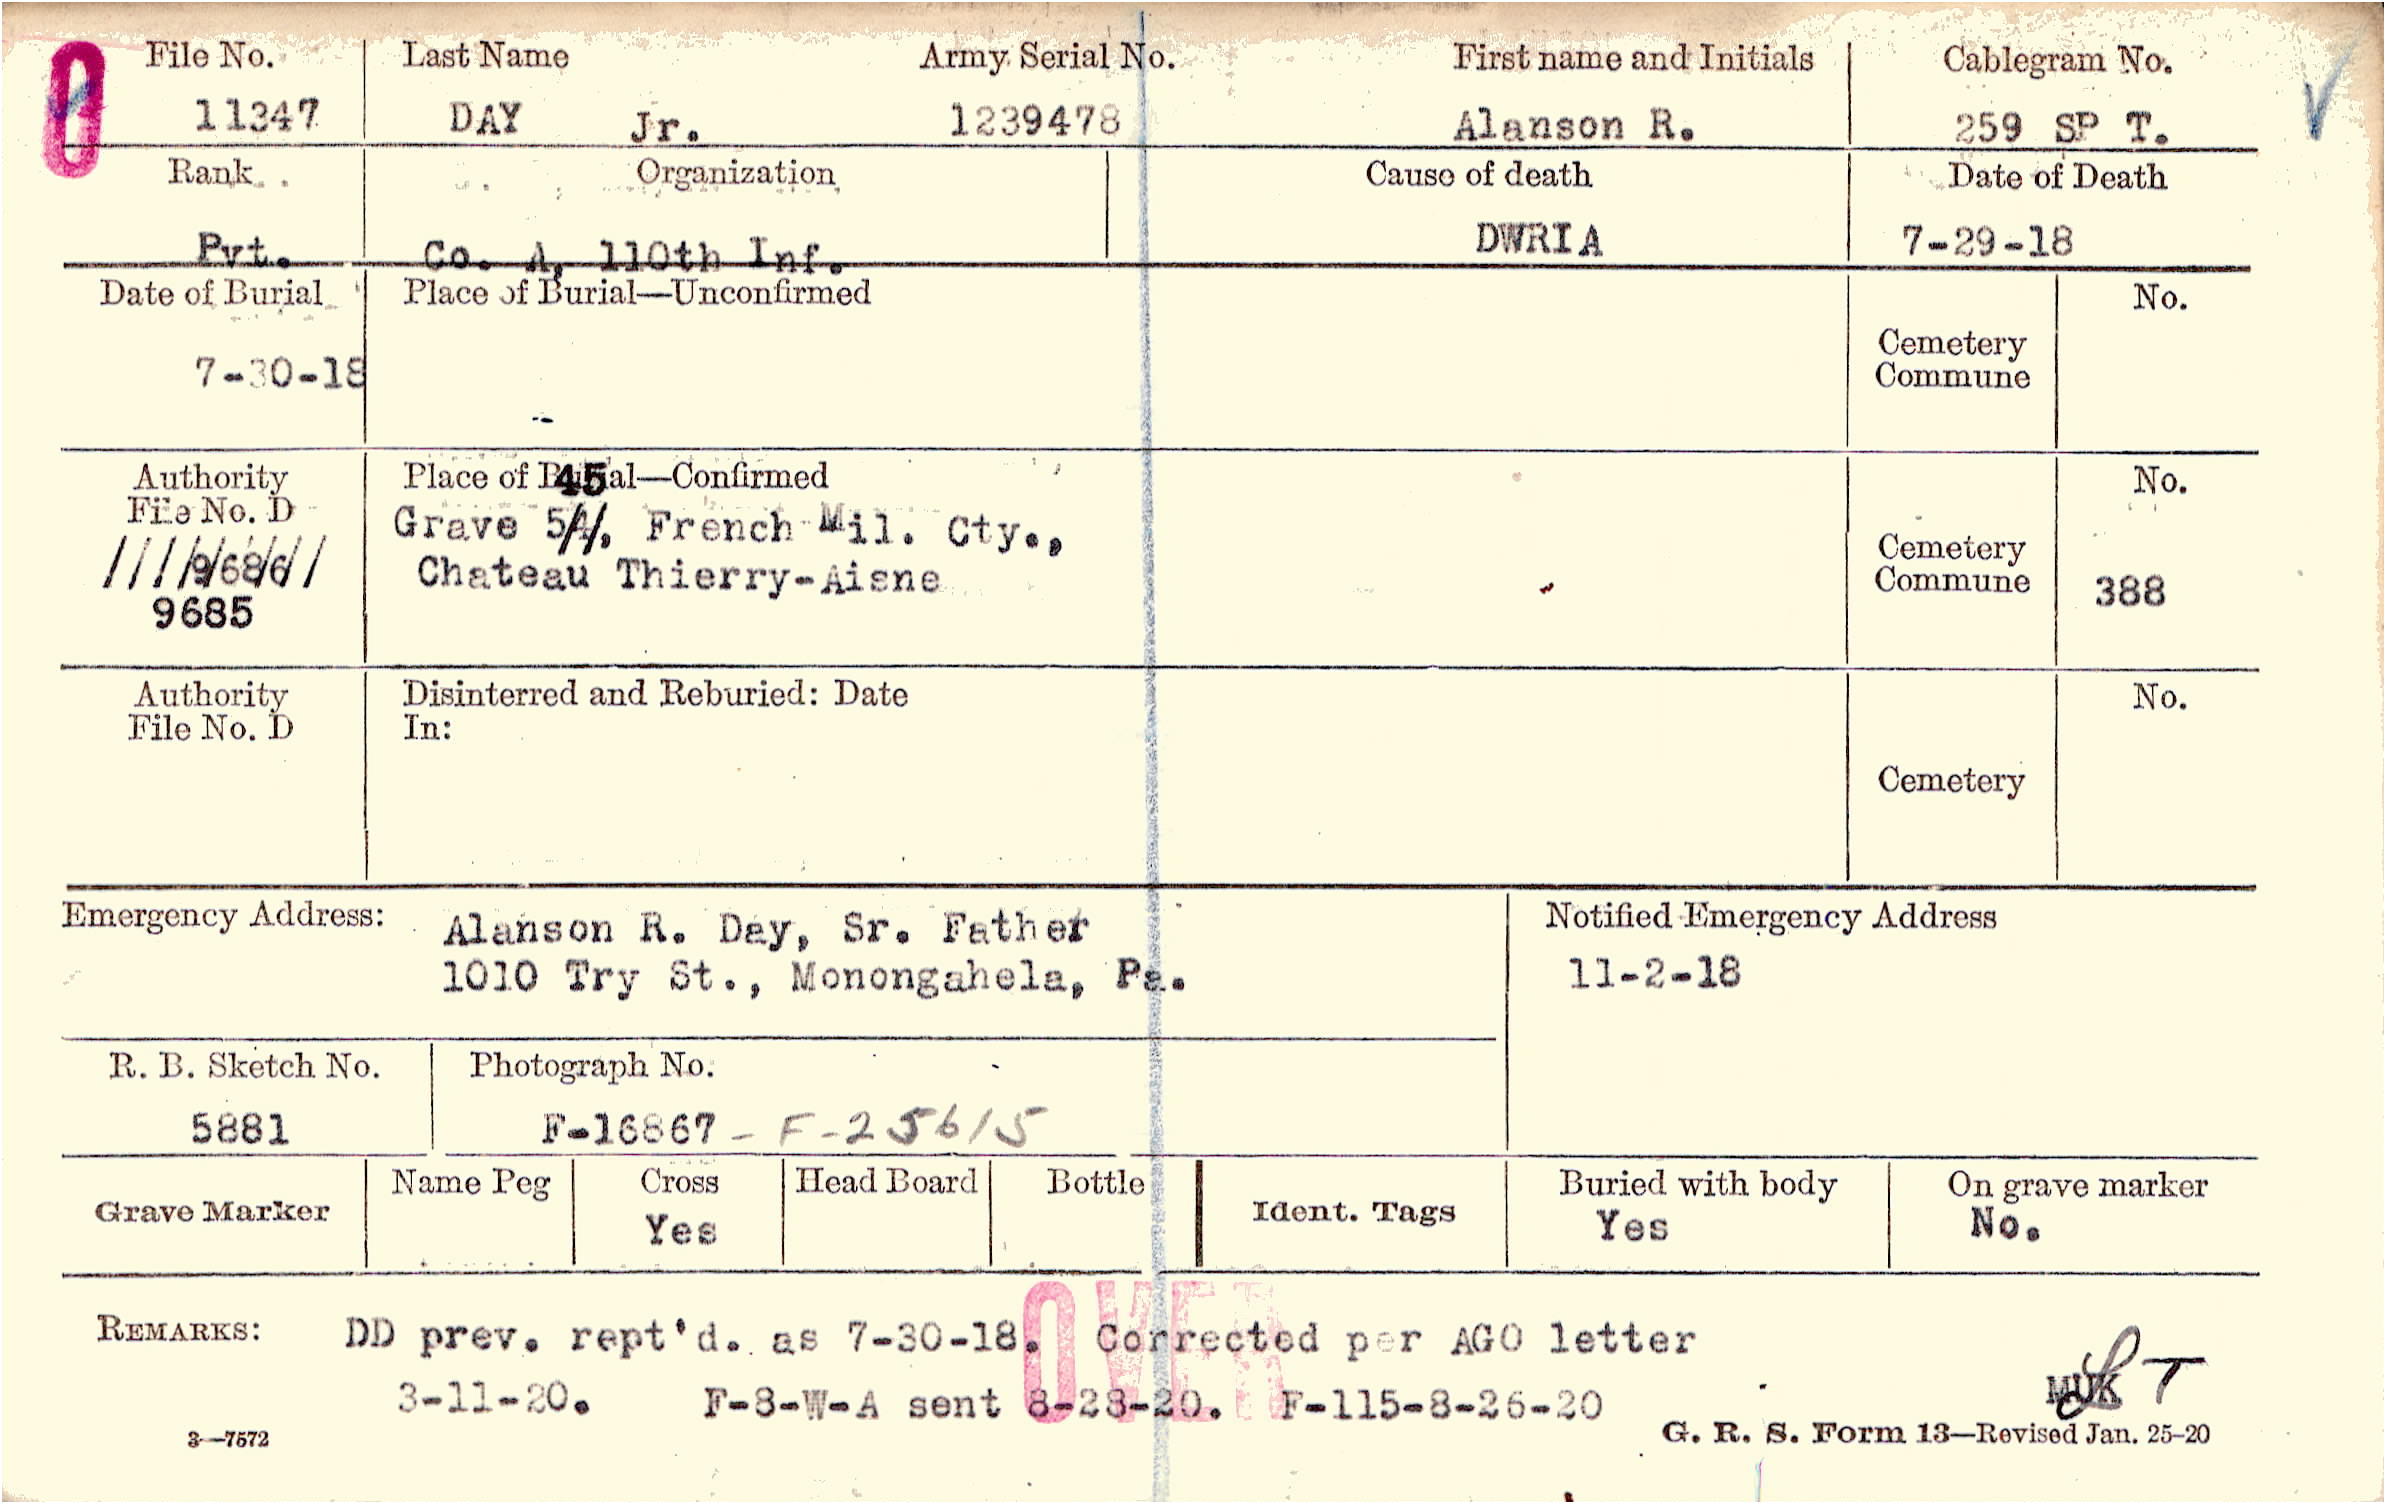 File No. Last Name Army Serial No. First name and Initials Cablegram No.
11347 DAY Jr. 1239478 Alanson R. 259 SP T.
Rank Organization Cause of death Date of Death
Pvt. Co. A, 110th Inf. DWRIA 7-29-18
Date of Burial Place of Burial—Unconfirmed No.
Cemetery
Commune
7-30-18
Authority Place of Burial—Confirmed No.
45
File No. D
Grave 54, French Mil. Cty.,
////9/68/6//
Chateau Thierry-Aisne
Cemetery
Commune 388
9685
Authority Disinterred and Reburied: Date No.
File No. D In:
Cemetery
Emergency Address: Alanson R. Day, Sr. Father
1010 Try St., Monongahela, Pa.
Notified Emergency Address
11-2-18
R. B. Sketch No. Photograph No.
5881 F-16867 - F-25615
Grave Marker Name Peg Cross Head Board Bottle Ident. Tags Buried with body On grave marker
Yes Yes No.
OVER
REMARKS: DD prev. rept'd. as 7-30-18. Corrected per AGO letter
3-11-20. F-8-W-A sent 8-28-20. F-115-8-26-20
MUK
3—7572 G. R. S. Form 13—Revised Jan. 25-20